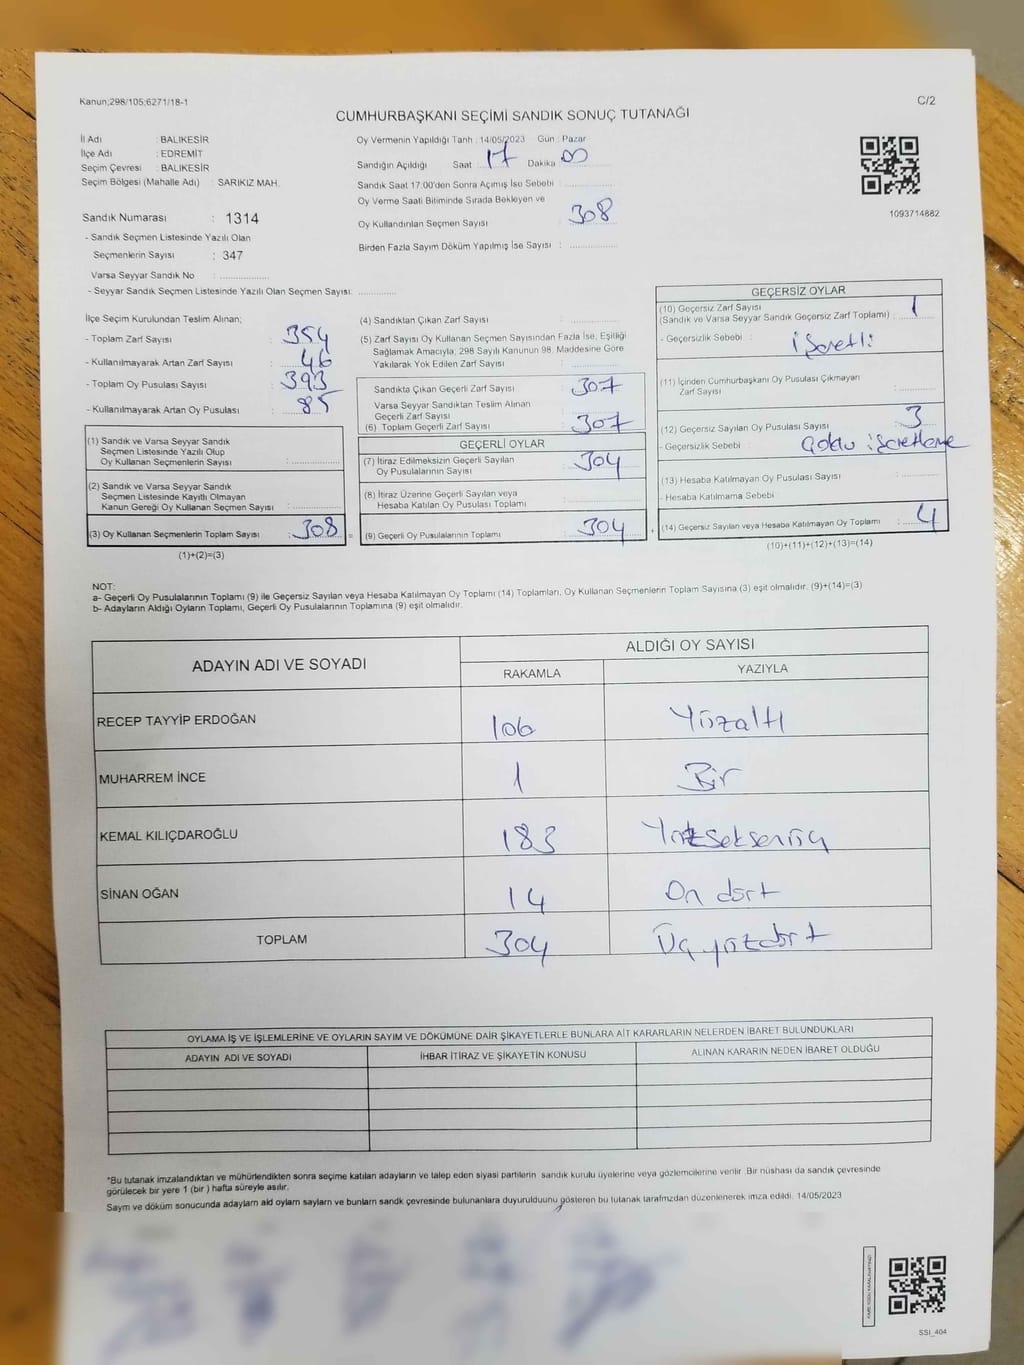 Kanun;298/105;6271/18-1
C/2
CUMHURBAŞKANI SEÇİMİ SANDIK SONUÇ TUTANAĞI
İl Adı : BALIKESİR
İlçe Adı : EDREMİT
Seçim Çevresi : BALIKESİR
Seçim Bölgesi (Mahalle Adı) : SARIKIZ MAH.
Sandık Numarası : 1314
- Sandık Seçmen Listesinde Yazılı Olan
Seçmenlerin Sayısı : 347
Varsa Seyyar Sandık No : ....................
- Seyyar Sandık Seçmen Listesinde Yazılı Olan Seçmen Sayısı: ...............
Oy Vermenin Yapıldığı Tarih : 14/05/2023 Gün : Pazar
Sandığın Açıldığı Saat 17 Dakika 00
Sandık Saat 17.00'den Sonra Açımış İse Sebebi : ....................
Oy Verme Saati Bitiminde Sırada Bekleyen ve
Oy Kullandırılan Seçmen Sayısı : 308
Birden Fazla Sayım Döküm Yapılmış İse Sayısı : ....................
1093714882
İlçe Seçim Kurulundan Teslim Alınan;
- Toplam Zarf Sayısı : 354
- Kullanılmayarak Artan Zarf Sayısı : 46
- Toplam Oy Pusulası Sayısı : 393
- Kullanılmayarak Artan Oy Pusulası : 85
(1) Sandık ve Varsa Seyyar Sandık
Seçmen Listesinde Yazılı Olup
Oy Kullanan Seçmenlerin Sayısı : ....................
(2) Sandık ve Varsa Seyyar Sandık
Seçmen Listesinde Kayıtlı Olmayan
Kanun Gereği Oy Kullanan Seçmen Sayısı : ....................
(3) Oy Kullanan Seçmenlerin Toplam Sayısı : 308 =
(1)+(2)=(3)
(4) Sandıktan Çıkan Zarf Sayısı : ....................
(5) Zarf Sayısı Oy Kullanan Seçmen Sayısından Fazla İse, Eşitliği
Sağlamak Amacıyla, 298 Sayılı Kanunun 98. Maddesine Göre
Yakılarak Yok Edilen Zarf Sayısı : ....................
Sandıkta Çıkan Geçerli Zarf Sayısı : 307
Varsa Seyyar Sandıktan Teslim Alınan
Geçerli Zarf Sayısı : ....................
(6) Toplam Geçerli Zarf Sayısı : 307
GEÇERLİ OYLAR
(7) İtiraz Edilmeksizin Geçerli Sayılan
Oy Pusulalarının Sayısı : 304
(8) İtiraz Üzerine Geçerli Sayılan veya
Hesaba Katılan Oy Pusulası Toplamı : ....................
(9) Geçerli Oy Pusulalarının Toplamı : 304 +
GEÇERSİZ OYLAR
(10) Geçersiz Zarf Sayısı
(Sandık ve Varsa Seyyar Sandık Geçersiz Zarf Toplamı) : 1
- Geçersizlik Sebebi : işaretli
(11) İçinden Cumhurbaşkanı Oy Pusulası Çıkmayan
Zarf Sayısı : ....................
(12) Geçersiz Sayılan Oy Pusulası Sayısı : 3
- Geçersizlik Sebebi : Çoklu işaretleme
(13) Hesaba Katılmayan Oy Pusulası Sayısı : ....................
- Hesaba Katılmama Sebebi
(14) Geçersiz Sayılan veya Hesaba Katılmayan Oy Toplamı : 4
(10)+(11)+(12)+(13)=(14)
NOT:
a- Geçerli Oy Pusulalarının Toplamı (9) ile Geçersiz Sayılan veya Hesaba Katılmayan Oy Toplamı (14) Toplamları, Oy Kullanan Seçmenlerin Toplam Sayısına (3) eşit olmalıdır. (9)+(14)=(3)
b- Adayların Aldığı Oyların Toplamı, Geçerli Oy Pusulalarının Toplamına (9) eşit olmalıdır.
ADAYIN ADI VE SOYADI
ALDIĞI OY SAYISI
RAKAMLA YAZIYLA
RECEP TAYYİP ERDOĞAN 106 Yüzaltı
MUHARREM İNCE 1 Bir
KEMAL KILIÇDAROĞLU 183 Yüzseksenüç
SİNAN OĞAN 14 On dört
TOPLAM 304 Üç yüzdört
OYLAMA İŞ VE İŞLEMLERİNE VE OYLARIN SAYIM VE DÖKÜMÜNE DAİR ŞİKAYETLERLE BUNLARA AİT KARARLARIN NELERDEN İBARET BULUNDUKLARI
ADAYIN ADI VE SOYADI İHBAR İTİRAZ VE ŞİKAYETİN KONUSU ALINAN KARARIN NEDEN İBARET OLDUĞU
*Bu tutanak imzalandıktan ve mühürlendikten sonra seçime katılan adayların ve talep eden siyasi partilerin sandık kurulu üyelerine veya gözlemcilerine verilir. Bir nüshası da sandık çevresinde
görülecek bir yere 1 (bir ) hafta süreyle asılır.
Sayım ve döküm sonucunda adayların ald oyların sayların ve bunların sandk çevresinde bulunanlara duyurulduunu gösteren bu tutanak tarafmzdan düzenlenerek imza edildi. 14/05/2023
SSI_404